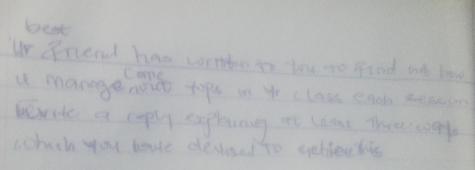 best
Ur friend has written to you to find out how
u manage come tops in yr class each session
Write a reply explaining at least three ways
which you have devised to achieve this